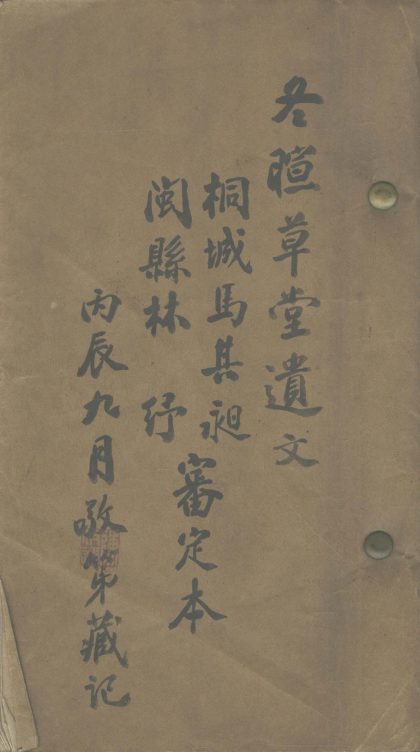 冬暄草堂遺文
桐城馬其昶
閩縣林紓
審定本
丙辰九月敬第藏記